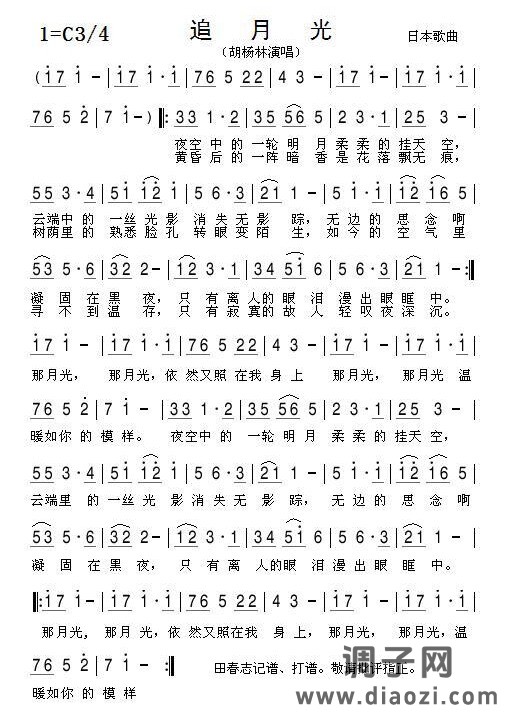 1=C3/4 追月光 日本歌曲
（胡杨林演唱）
( i7 i - | i7 i · i | 76 5 22 | 4 3 - | i7 i - | i7 i · i |
76 5 2̇ | 7 i - ) ‖: 33 1·2 | 35 56 5 | 2 3·1 | 25 3 - |
夜空中的一轮明月柔柔的挂天空，
黄昏后的一阵暗香是花落飘无痕，
55 3·4 | 5i i2̇ i | 5 6·3 | 2i 1 - | 5 6·i | i2̇ i6 5 |
云端中的一丝光影消失无影踪，无边的思念啊
树荫里的熟悉脸孔转眼变陌生，如今的空气里
53 5·6 | 32 2 - | 12 3·1 | 34 5i 6 | 5 6·3 | 21 1 - :‖
凝固在黑夜，只有离人的眼泪漫出眼眶中。
寻不到温存，只有寂寞的故人轻叹夜深沉。
i7 i - | i7 i · i | 76 5 22 | 4 3 - | i7 i - | i7 i · i |
那月光，那月光，依然又照在我身上那月光，那月光温
76 5 2̇ | 7 i - | 33 1·2 | 35 56 5 | 2 3·1 | 25 3 - |
暖如你的模样。夜空中的一轮明月柔柔的挂天空，
55 3·4 | 5i i2̇ i | 5 6·3 | 21 1 - | 5 6·i | i2̇ i6 5 |
云端里的一丝光影消失无影踪，无边的思念啊
53 5·6 | 32 2 - | 12 3·1 | 34 5i 6 | 5 6·3 | 21 1 - |
凝固在黑夜，只有离人的眼泪漫出眼眶中。
‖: i7 i - | i7 i · i | 76 5 22 | 4 3 - | i7 i - | i7 i · i |
那月光，那月光，依然又照在我身上，那月光，那月光，温
76 5 2̇ | 7 i - :‖ 田春志记谱、打谱。敬请批评指正。
暖如你的模样
调子网
www.diaozi.com